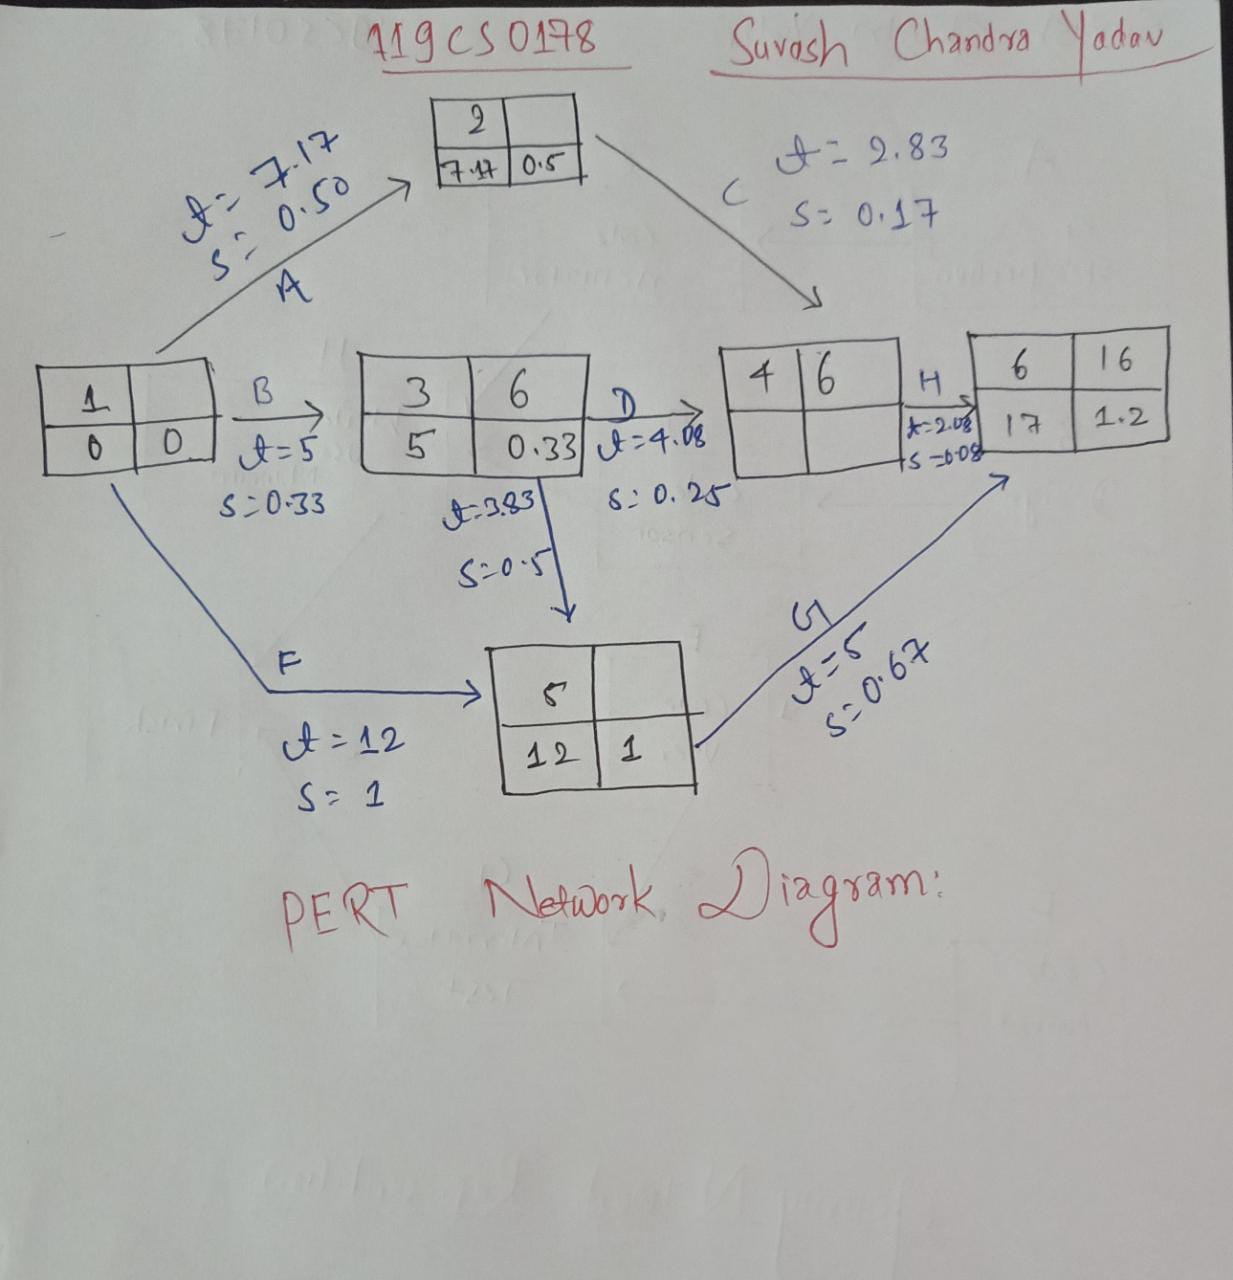 119CS0178 Suvash Chandra Yadav
2
7.17 0.5
t= 7.17
s= 0.50
A
C t= 2.83
s= 0.17
1
0 0
B
t=5
s=0.33
3 6
5 0.33
D
t=4.08
s= 0.25
4 6
H
t=2.08
s=0.08
6 16
17 1.2
t=3.83
s=0.5
F
t=12
s= 1
5
12 1
G
t=5
s=0.67
PERT Network Diagram: